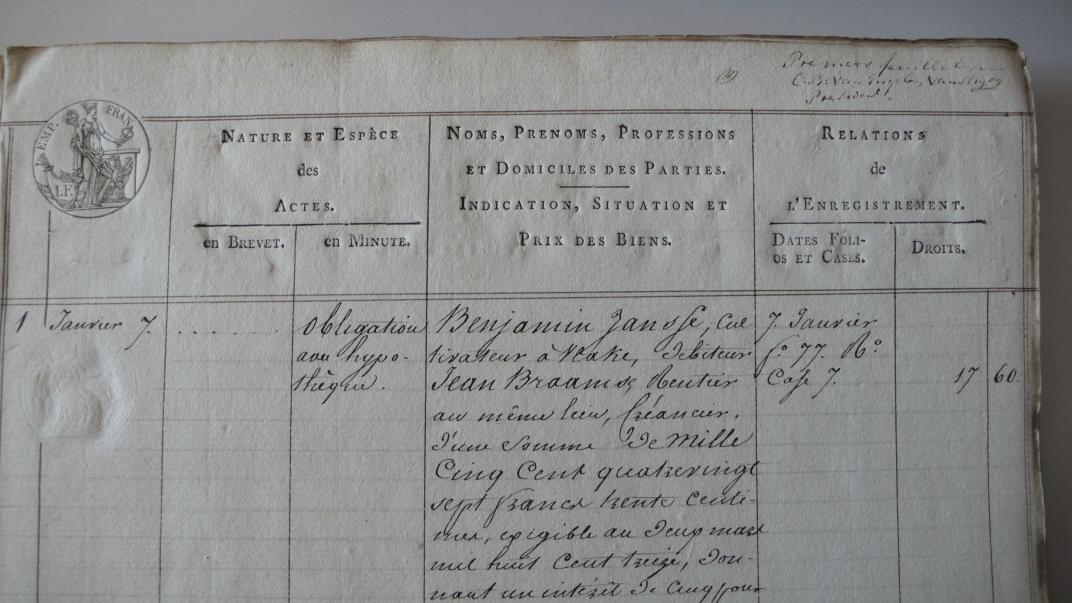 Premier feuillet
President.
EMP. FRAN.
I.F.
NATURE ET ESPÈCE
des
ACTES.
en BREVET.
en MINUTE.
NOMS, PRENOMS, PROFESSIONS
ET DOMICILES DES PARTIES.
INDICATION, SITUATION ET
PRIX DES BIENS.
RELATIONS
de
L'ENREGISTREMENT.
DATES FOLI-
OS ET CASES.
DROITS.
1 Janvier 7.
obligation
avec hypo-
thèque.
Benjamin Jansse, Cul
tivateur à Kake, Debiteur
Jean Braamse, Rentier
au même lieu, Créancier,
d'une somme de Mille
Cinq Cent quatrevingt
sept francs trente Centi-
mes, exigible au Deux mars
mil huit Cent treize, Don-
nant un intérêt de Cinq pour
7. Janvier
fo. 77. Ro.
Case 7.
17 60.